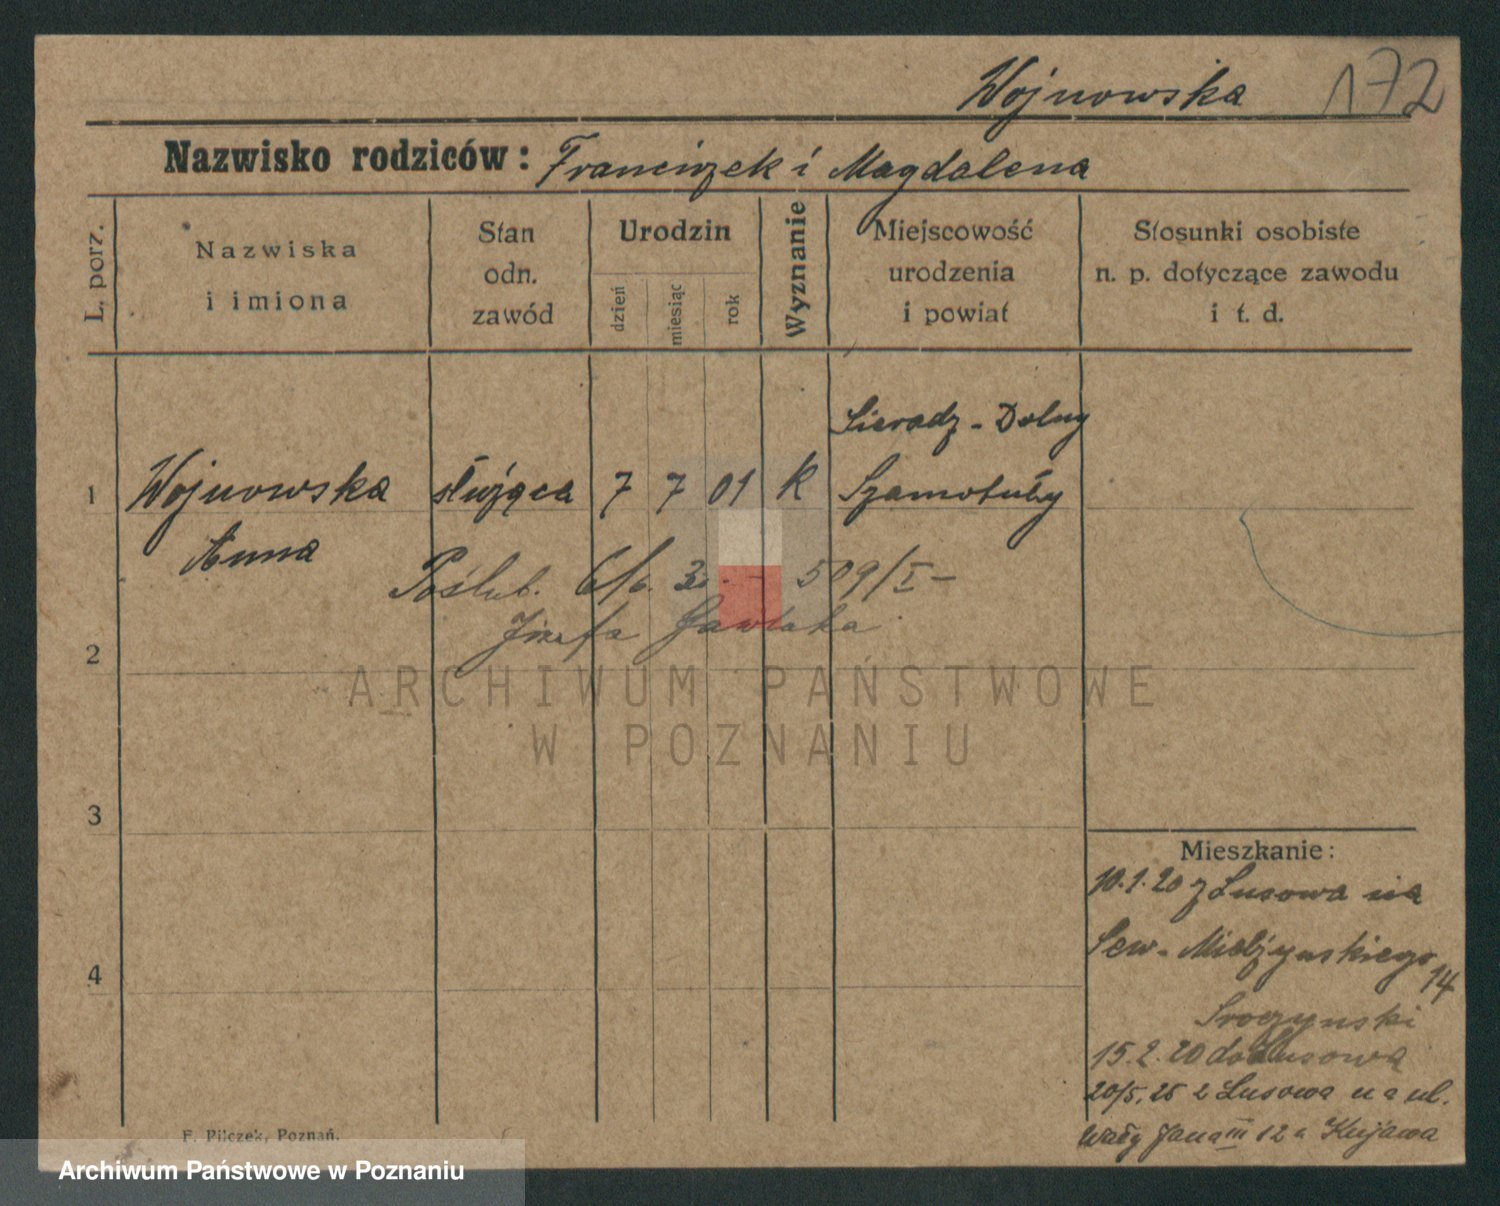 Wojnowska 172
Nazwisko rodziców: Franciszek i Magdalena
L. porz.
Nazwiska
i imiona
Stan
odn.
zawód
Urodzin
dzień
miesiąc
rok
Wyznanie
Miejscowość
urodzenia
i powiat
Stosunki osobiste
n. p. dotyczące zawodu
i t. d.
Sieradz - Dolny
1 Wojnowska służąca 7 7 01 K Szamotuły
Anna
Poślub. 6/6. 509/I -
Józefa Gawlaka
2
ARCHIWUM PAŃSTWOWE
W POZNANIU
3
4
Mieszkanie:
10.1.20 z Lusowa na
Sew. Mielżynskiego 14
15.2.20 do Lusowa
20/5.25 z Lusowa na ul.
Wały Jana III 12 u Kujawa
F. Pilczek, Poznań.
Archiwum Państwowe w Poznaniu